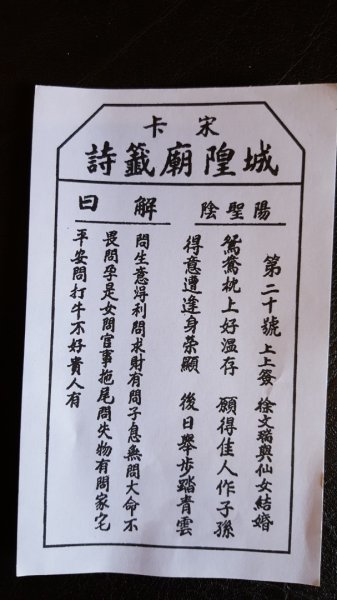 卡宋
詩籤廟隍城
曰解
陰聖陽
第二十號 上上簽 徐文瑞與仙女結婚
鴛鴦枕上好溫存 願得佳人作子孫
得意遭逢身榮顯 後日舉步踏青雲
問生意淂利問求財有問子息無問大命不
畏問孕是女問官事拖尾問失物有問家宅
平安問打牛不好貴人有